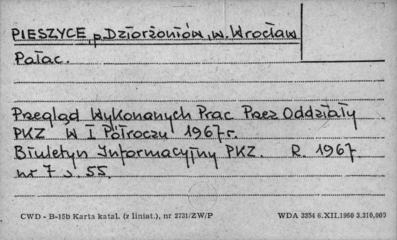 PIESZYCE, p. Dzierżoniów, w. Wrocław
Pałac.
Przegląd Wykonanych Prac Przez Oddziały
PKZ W I Półroczu 1967 r.
Biuletyn Informacyjny PKZ. R. 1967
nr 7 s. 55.
CWD - B-15b Karta katal. (z liniat.), nr 2731/ZW/P WDA 3354 6.XII.1960 3.310,000